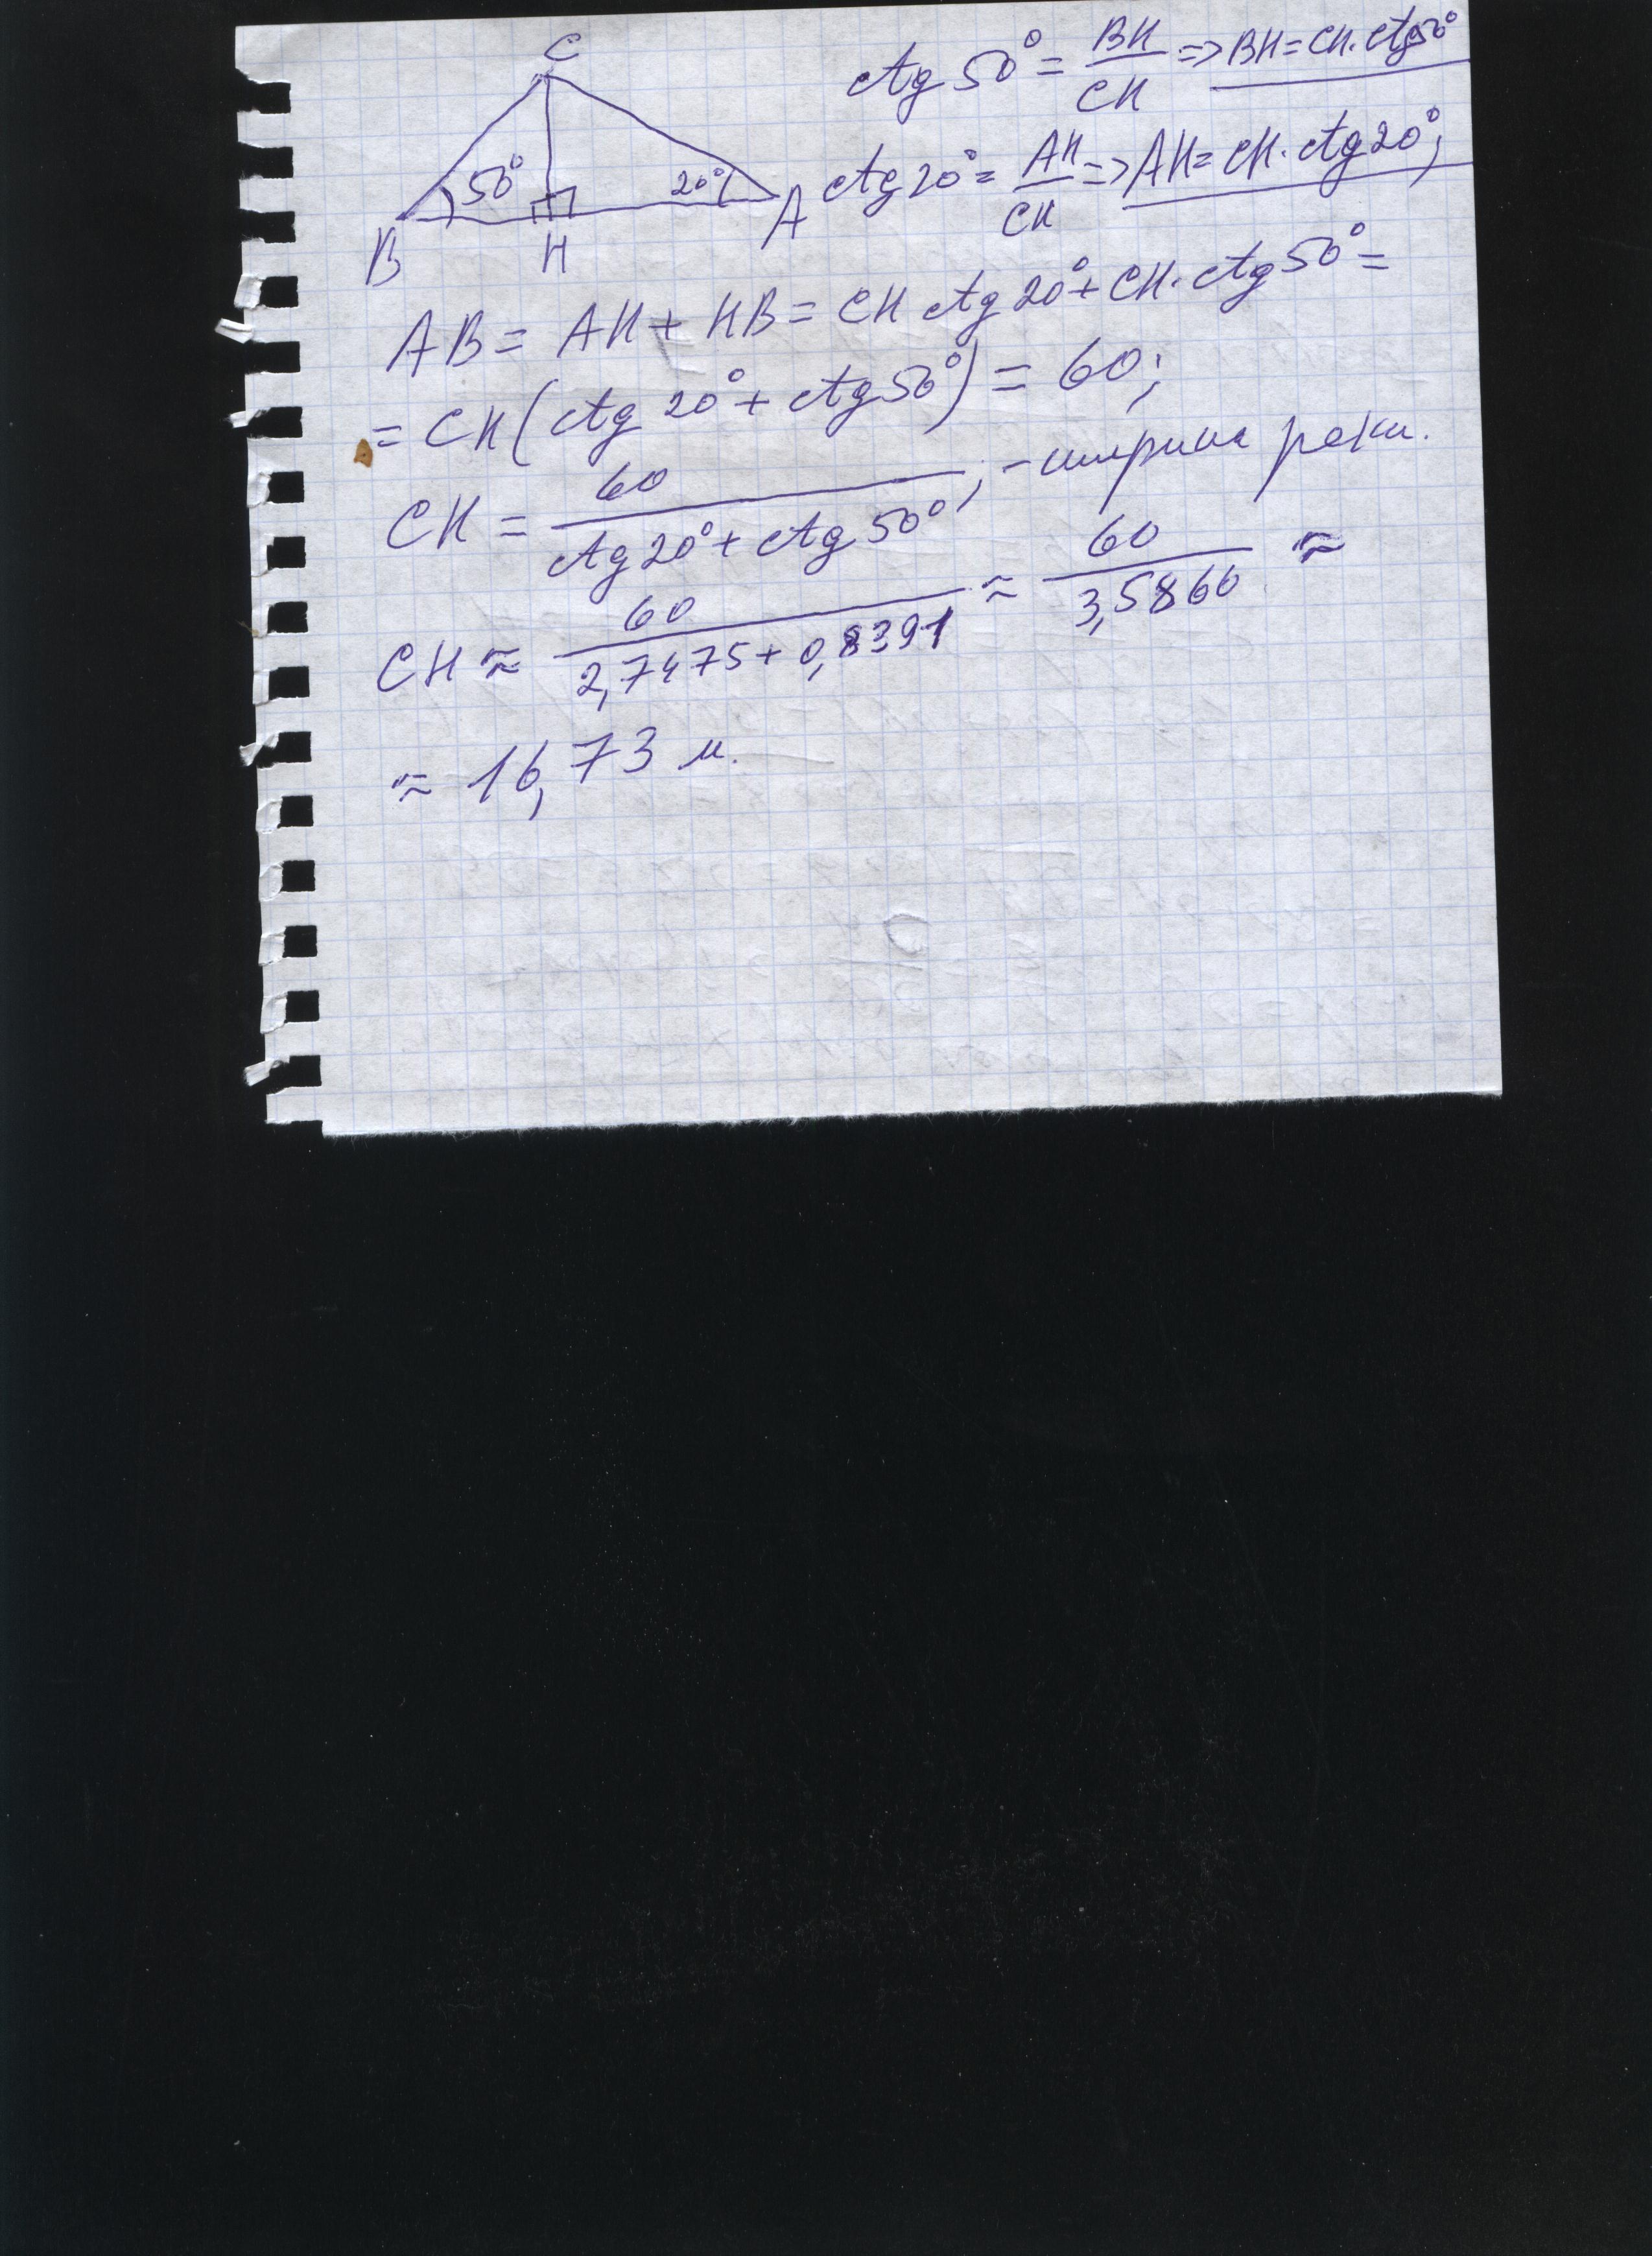 C
50°
20°
B
H
A
ctg 50° = BH/CH => BH = CH · ctg 50°
ctg 20° = AH/CH => AH = CH · ctg 20°;
AB = AH + HB = CH ctg 20° + CH · ctg 50° =
= CH (ctg 20° + ctg 50°) = 60;
CH = 60/(ctg 20° + ctg 50°); - ширина реки.
CH ≈ 60/(2,7475 + 0,8391) ≈ 60/3,5866 ≈
≈ 16,73 м.